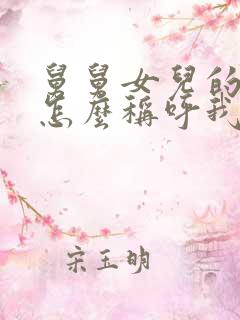 舅舅女兒的
怎麼稱呼我
宋玉明